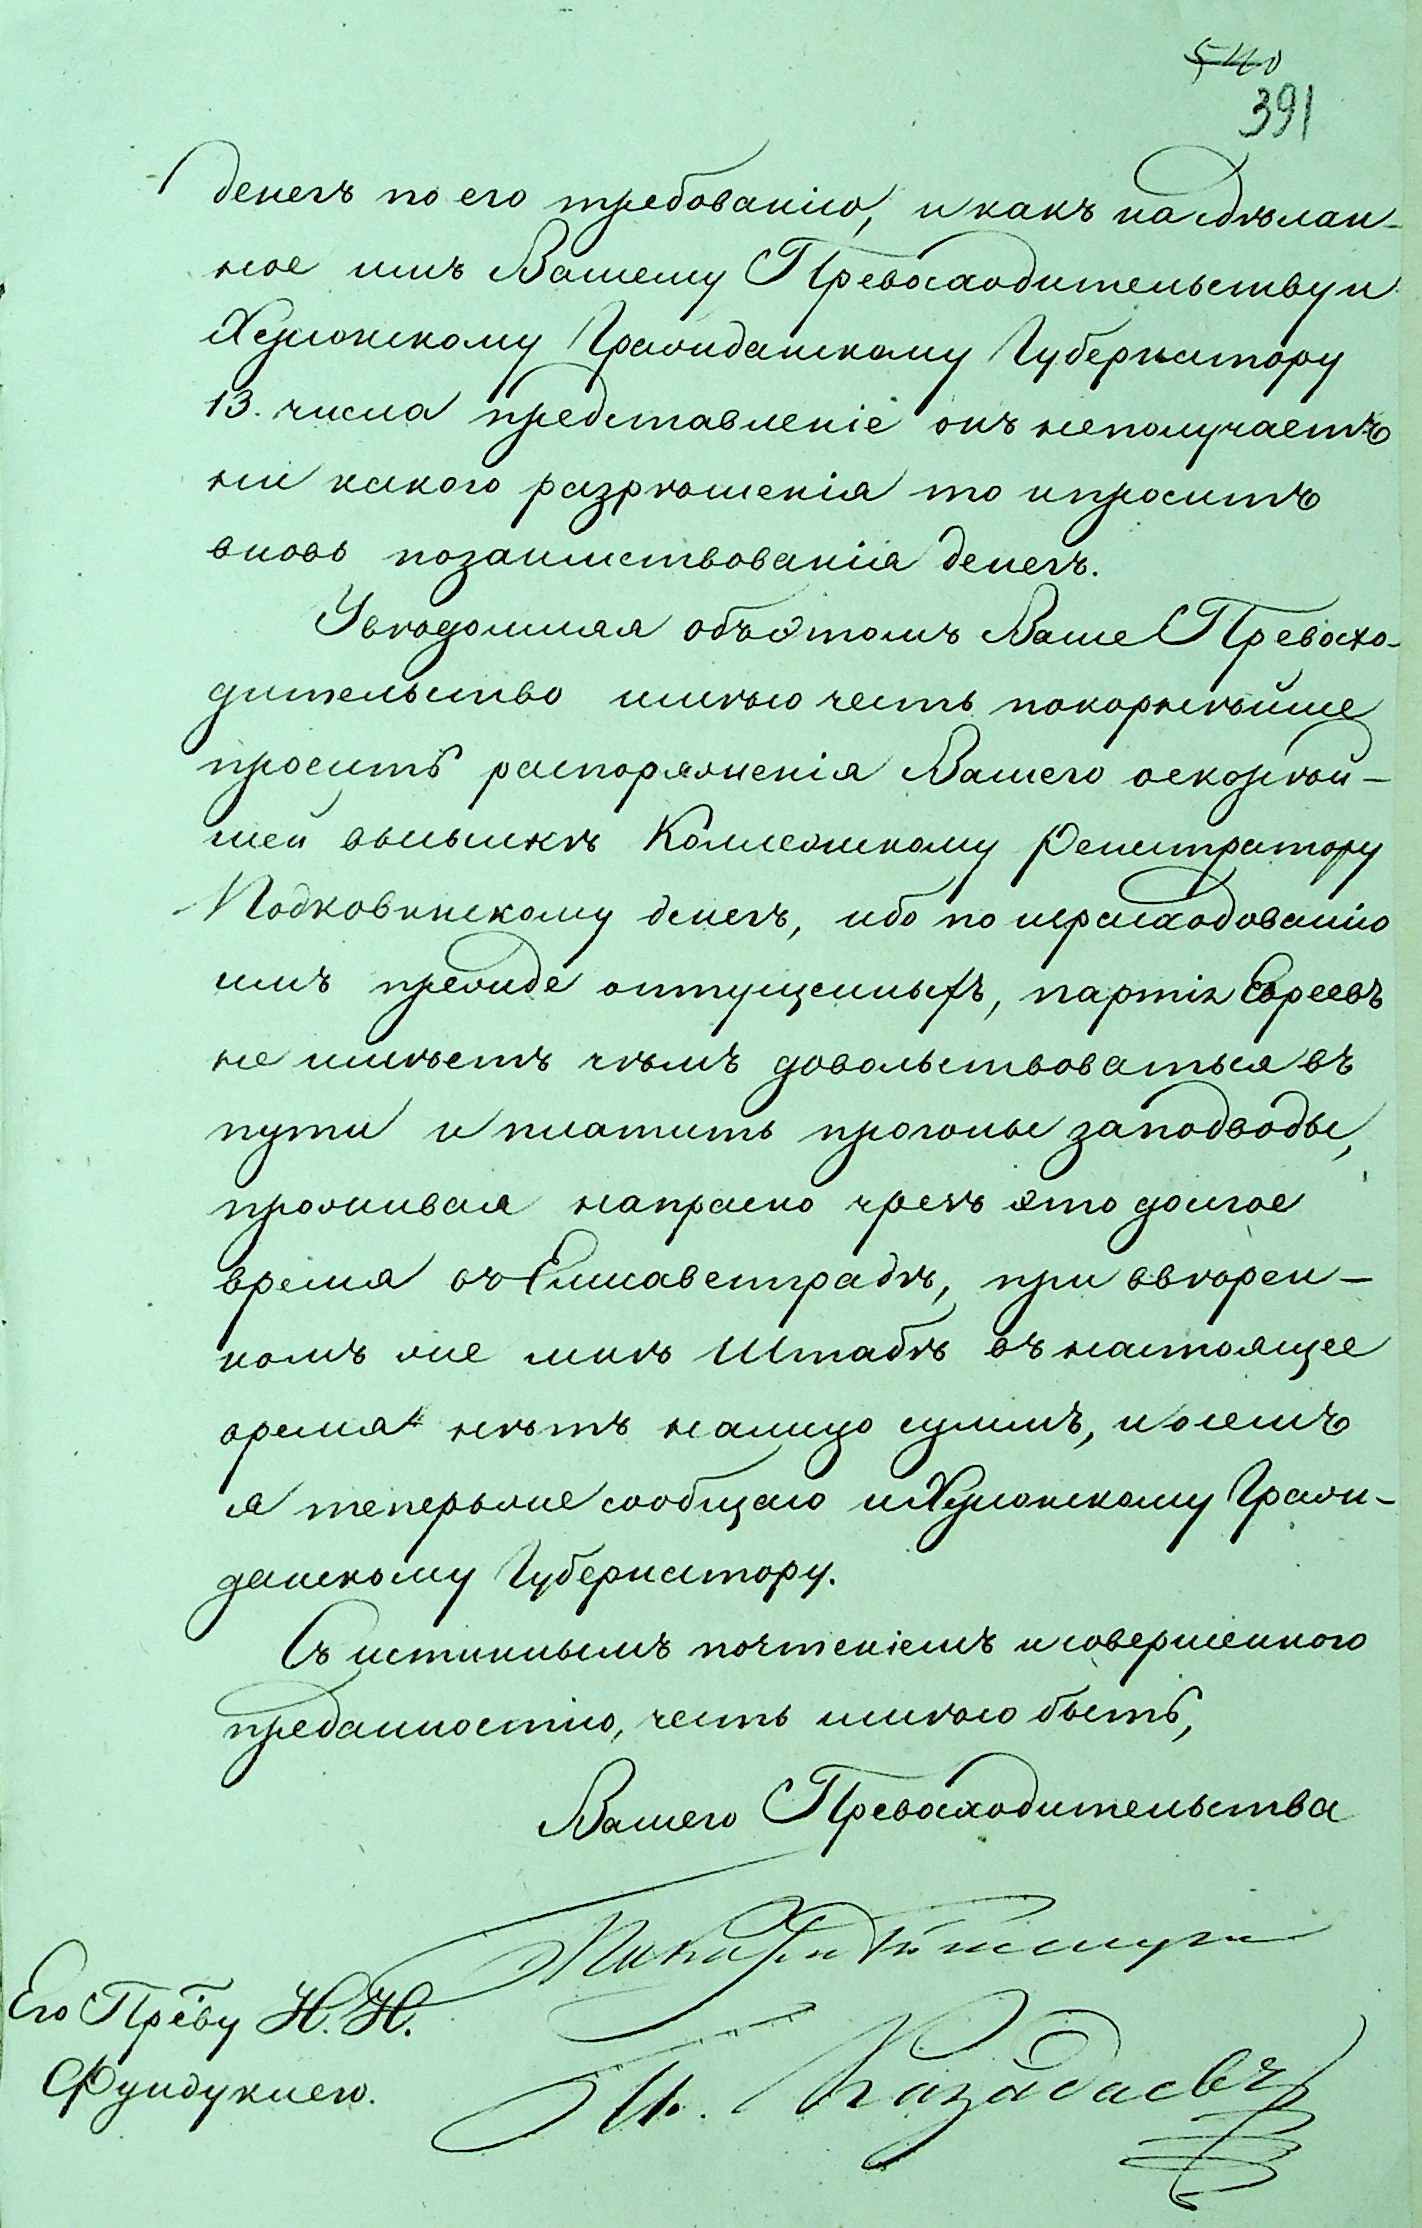 540
391
денегъ по его требованію, и какъ на сдѣлан-
ное имъ Вашему Превосходительству и
Херсонскому Гражданскому Губернатору
13. числа представленіе онъ неполучаетъ
ни какого разрѣшенія то и проситъ
вновь позаимствованія денегъ.
Увѣдомляя объ этомъ Ваше Превосхо-
дительство имѣю честь покорнѣйше
просить распоряженія Вашего о скорѣй-
шей высылкѣ Коллежскому Регистратору
Подковинскому денегъ, ибо по израсходованію
имъ прежде отпущенныхъ, партія Евреевъ
не имѣетъ чѣмъ довольствоваться въ
пути и платить прогоны за подводы,
проживая напрасно чрезъ это долгое
время въ Елисаветградѣ, при ввѣрен-
номъ же мнѣ Штабѣ въ настоящее
время нѣтъ налицо суммъ, и о семъ
я теперь же сообщаю и Херсонскому Граж-
данскому Губернатору.
Съ истиннымъ почтеніемъ и совершенною
преданностію, честь имѣю быть,
Вашего Превосходительства
Покорнѣйшій слуга
Его Прев̃у И. И.
Фундуклею.
И. Казадаевъ